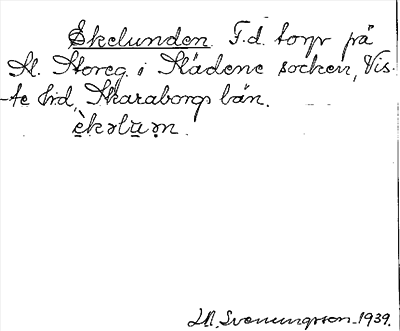 Ekelunden F.d. torp på
Kl. Storeg. i Slädene socken, Vis-
-te hd, Skaraborgs län.
èkəlu̲n̥
Svenungsson. 1939.